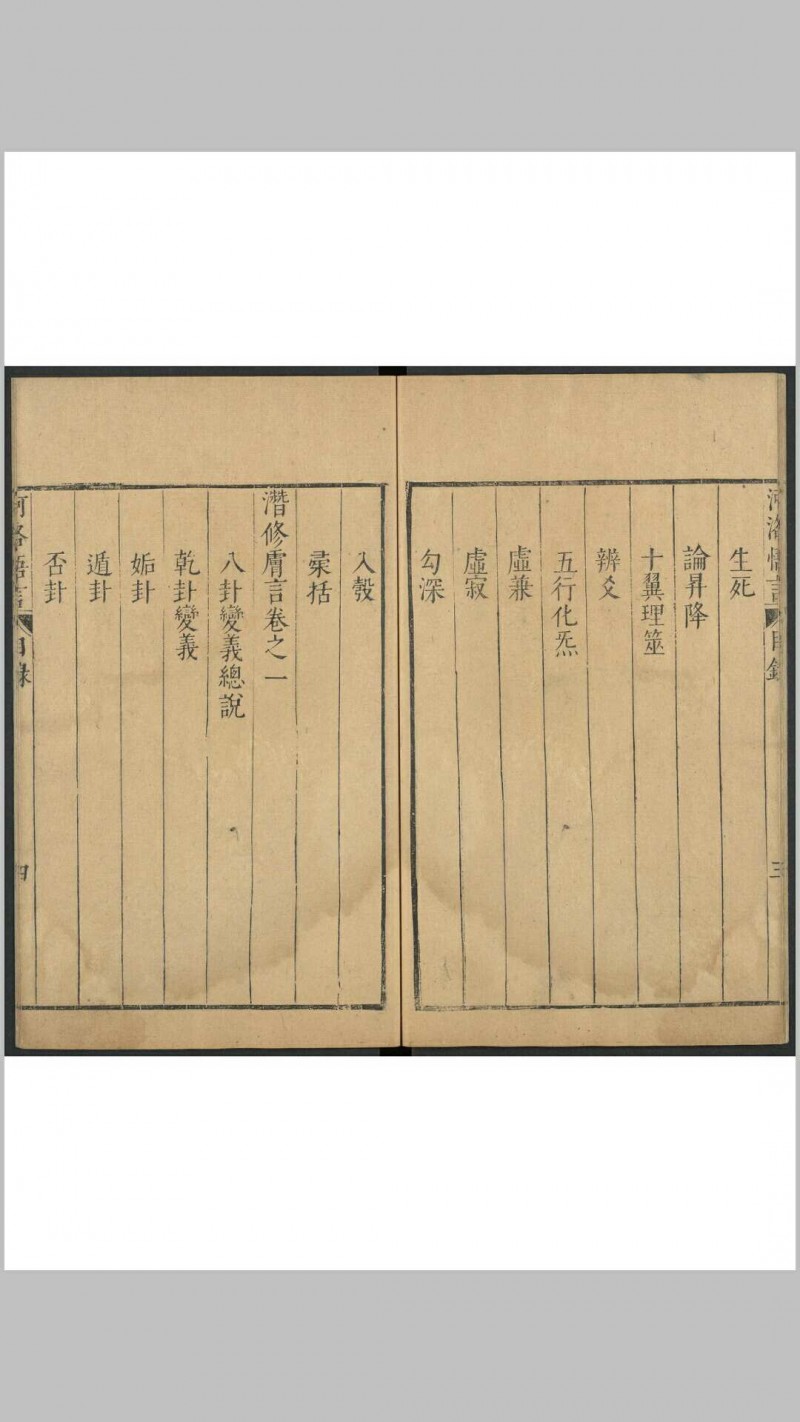 河洛悟言 目錄 三
生死
論昇降
十翼理筮
辨爻
五行化炁
虛兼
虛寂
勾深
入彀
槖括
潛修膚言卷之一
八卦變義總說
乾卦變義
姤卦
遁卦
否卦
河洛悟言 目錄 四